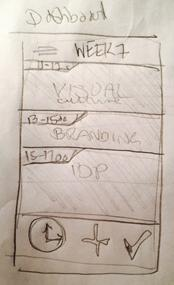 Dashboard
WEEK 7
11-13
VISUAL
culture
13-1500
BRANDING
15-1700
IDP